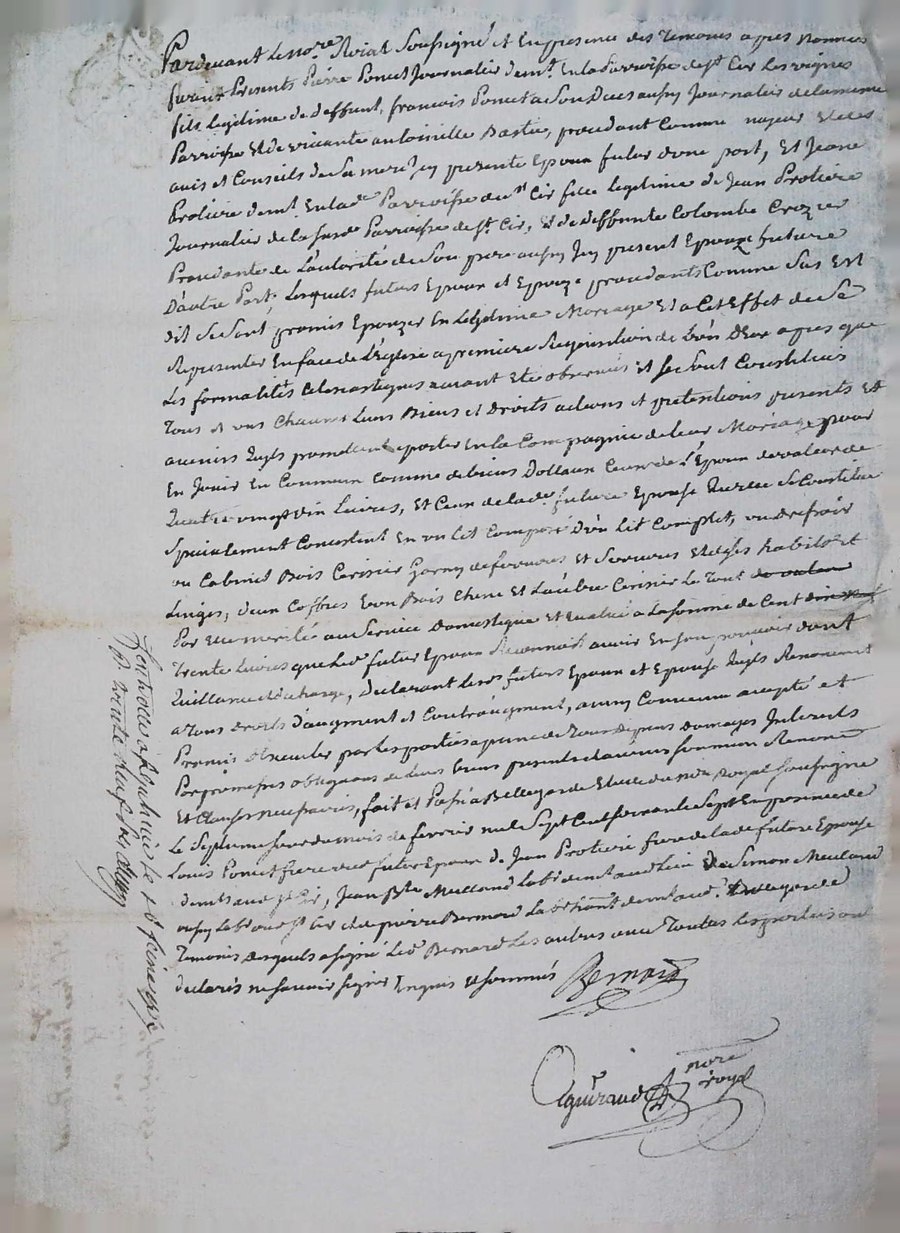 Pardevant le nore Roial Soussigné et En presence des Temoins apres nommés
furent Presents Pierre Poncet Journalier demt En la Parroisse de St Cir Les vignes
fils legitime de deffunt francois Poncet a son Deces aussy Journalier de la meme
Parroisse Et de vivante antoinette Bastie, procedant Comme majeur et de
avis et Conseils de Sa mere Icy presente Epoux futur d'une part, Et Jeane
Protiere demt En lad Parroisse de St Cir fille legitime de Jean Protiere
Journalier de la susde Parroisse de St Cir, Et de deffunte Colombe Crozier
Procedante de L'autorité de Son pere aussy Icy present Epouze future
D'autre Part, Lesquels futurs Epoux et Epouze procedants Comme Sus Est
dit se sont promis Epouzer En Legitime Mariage Et a Cet Effet de Se
Representer En face de L'Eglise a premiere Requisition de L'un D'Eux apres que
Les formalités auront Eté observées Et se sont Constitués
Tous et uns Chacuns Leurs Biens et Droits actions et pretentions presents Et
avenirs quils promettent porter En la Compagnie de leur Mariage pour
En Jouir En Commun Comme de biens Dottaux Ceux de l'Epoux de valeur de
Quatre vingt dix Livres, Et Ceux de lade future Epouse quelle Se Constitue
Specialement Consistent En un lit Composé D'un Lit Complet,
un Cabinet Bois Cerisier Garny de ferrures Et Serrures Et de ses habits et
Linges, d'un Coffre Bois Chene Et L'autre Cerisier Le Tout de valeur
Par Eux merité au Service Domestique Et Evalué a La somme de Cent
Trente Livres que Led futur Epoux Reconnait avoir En son pouvoir dont
Quittance et decharge, Declarant Lesds futurs Epoux et Epouse quils Renoncent
a Tous droits d'augment et Contraugment, ainsy Convenu accepté et
Promis observer par les parties a peine de Tous depens domages Interests
Par promesses obligeans de leurs biens presents et avenir soumis. Renonc.
Et Clauses necessaires, fait et Passé a Bellegarde Etude du nore Royal Soussigné
Le Septieme Jour du mois de fevrier mil Sept Cent Soixante Sept En presence de
Louis Poncet frere dud futur Epoux de Jean Protiere frere de lade future Epouse
demts aud St Cir, Jean Bte Mulland Labr demt aud Lieu de Simon Meuland
aussy Labr aud St Cir et de pierre Bernard Labr demt aud Bellegarde
Temoins desquels a signé Led Bernard Les autres avec Toutes Les parties ont
declarés ne savoir signer Enquis et Sommés Bernard
aguiraud nore royal
Controllé a le 16 fevrier 1767
Rd trente cinq sols